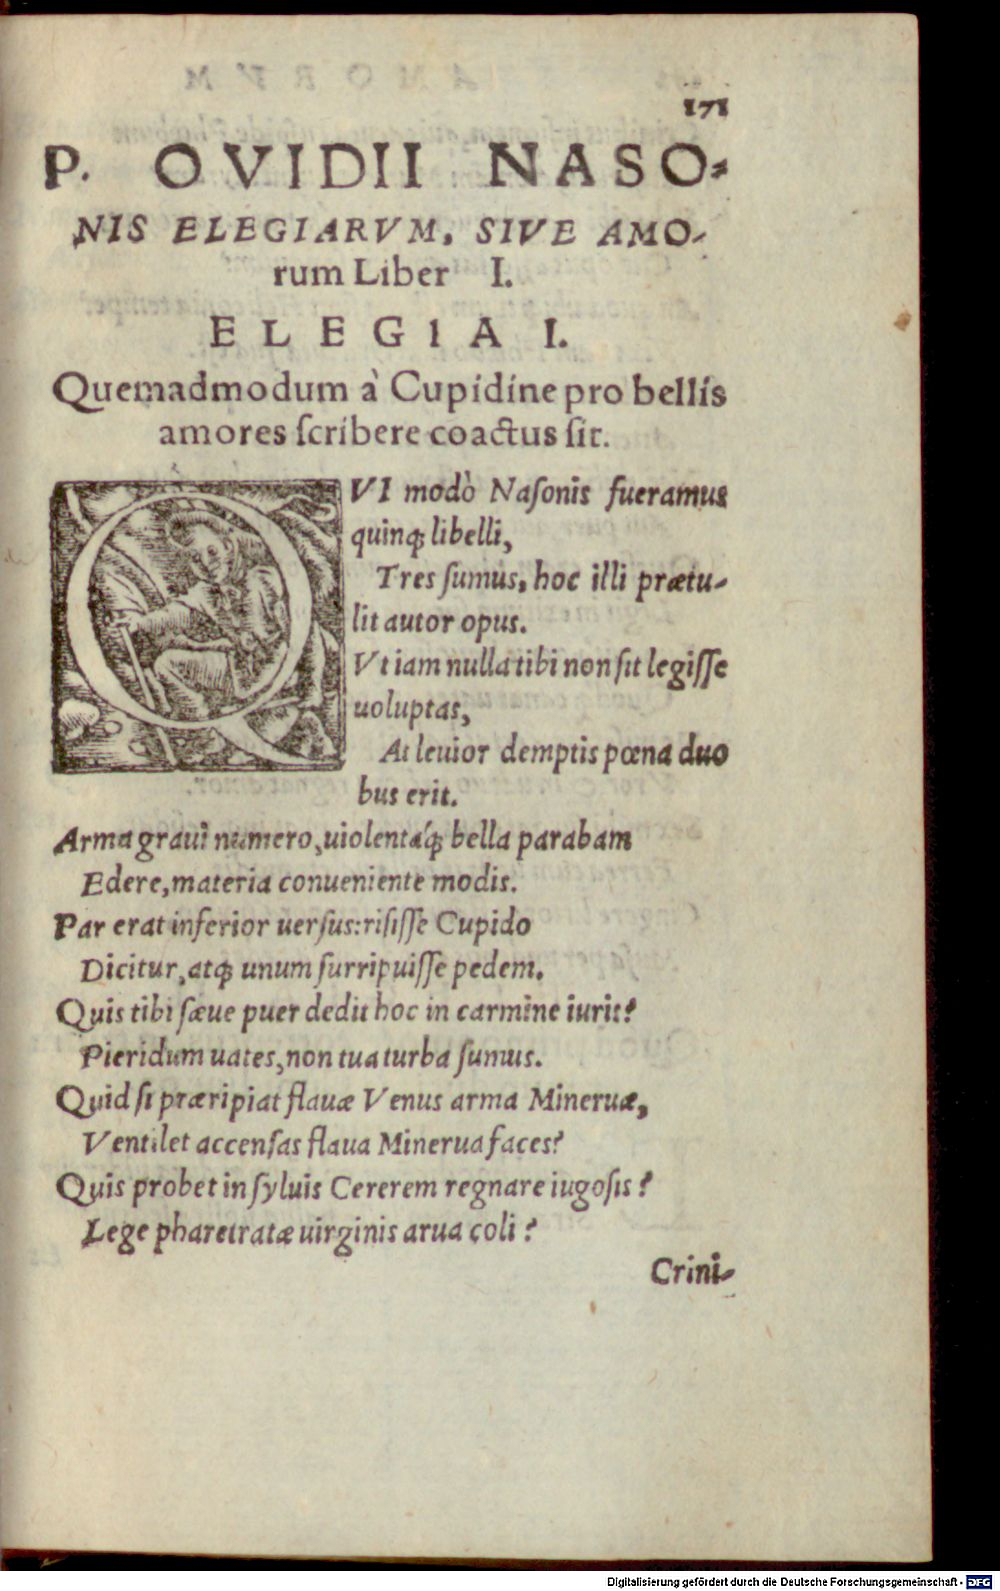 171
P. OVIDII NASO-
NIS ELEGIARVM, SIVE AMO-
rum Liber I.
ELEGIA I.
Quemadmodum à Cupidine pro bellis
amores ſcribere coactus ſit.
QVI modò Naſonis fueramus
quinq́; libelli,
Tres ſumus, hoc illi prætu-
lit autor opus.
Vt iam nulla tibi non ſit legiſſe
uoluptas,
At leuior demptis pœna duo
bus erit.
Arma graui numero, uiolentáq́; bella parabam
Edere, materia conueniente modis.
Par erat inferior uerſus: riſiſſe Cupido
Dicitur, atq́; unum ſurripuiſſe pedem.
Quis tibi ſæue puer dedit hoc in carmine iuris?
Pieridum uates, non tua turba ſumus.
Quid ſi præripiat flauæ Venus arma Mineruæ,
Ventilet accenſas flaua Minerua faces?
Quis probet in ſyluis Cererem regnare iugoſis?
Lege pharetratæ uirginis arua coli?
Crini-
Digitalisierung gefördert durch die Deutsche Forschungsgemeinschaft - DFG